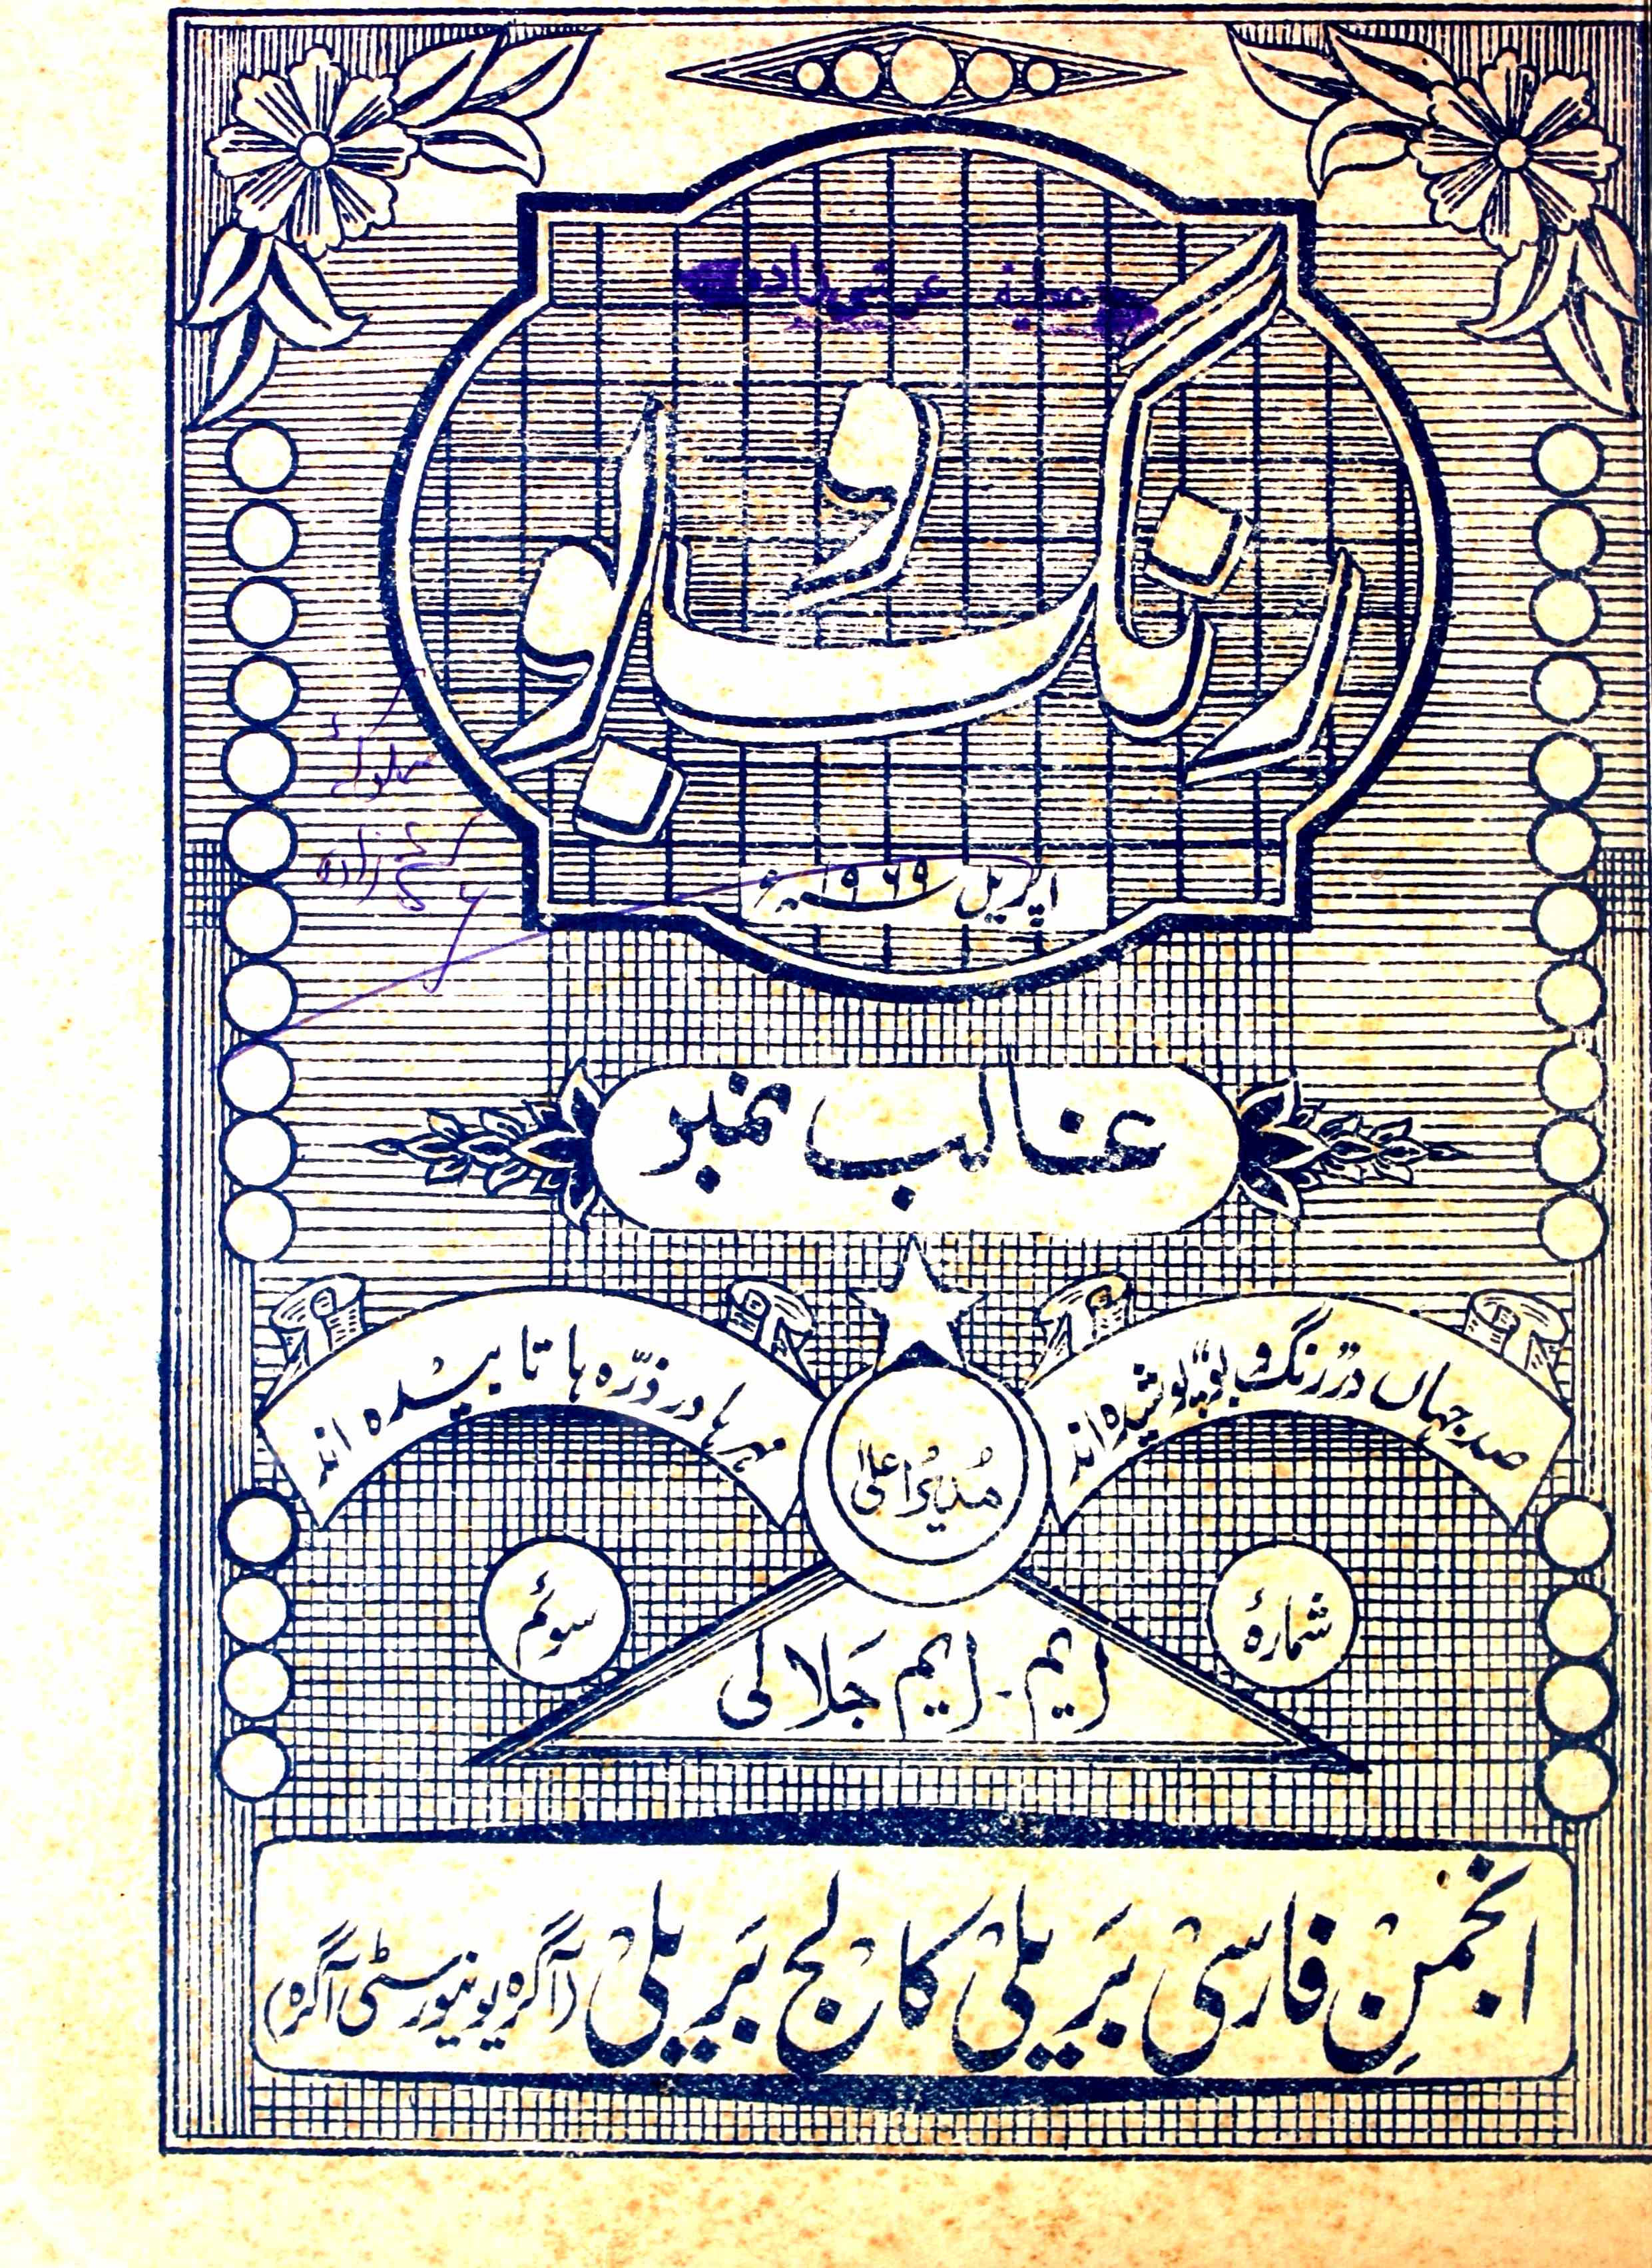 عطیہ عرشی زادہ
رنگ و بو
اپریل ۱۹۶۹ء
غالب نمبر
صد جہاں در رنگ و بو پوشیدہ اند
مہرہا در ذرّہ ہا تابیدہ اند
مُدیرِ اعلیٰ
شمارۂ
سوئم
ایم۔ ایم جَلالی
انجمنِ فارسی بَریلی کالج بَریلی (آگرہ یونیورسٹی آگرہ)